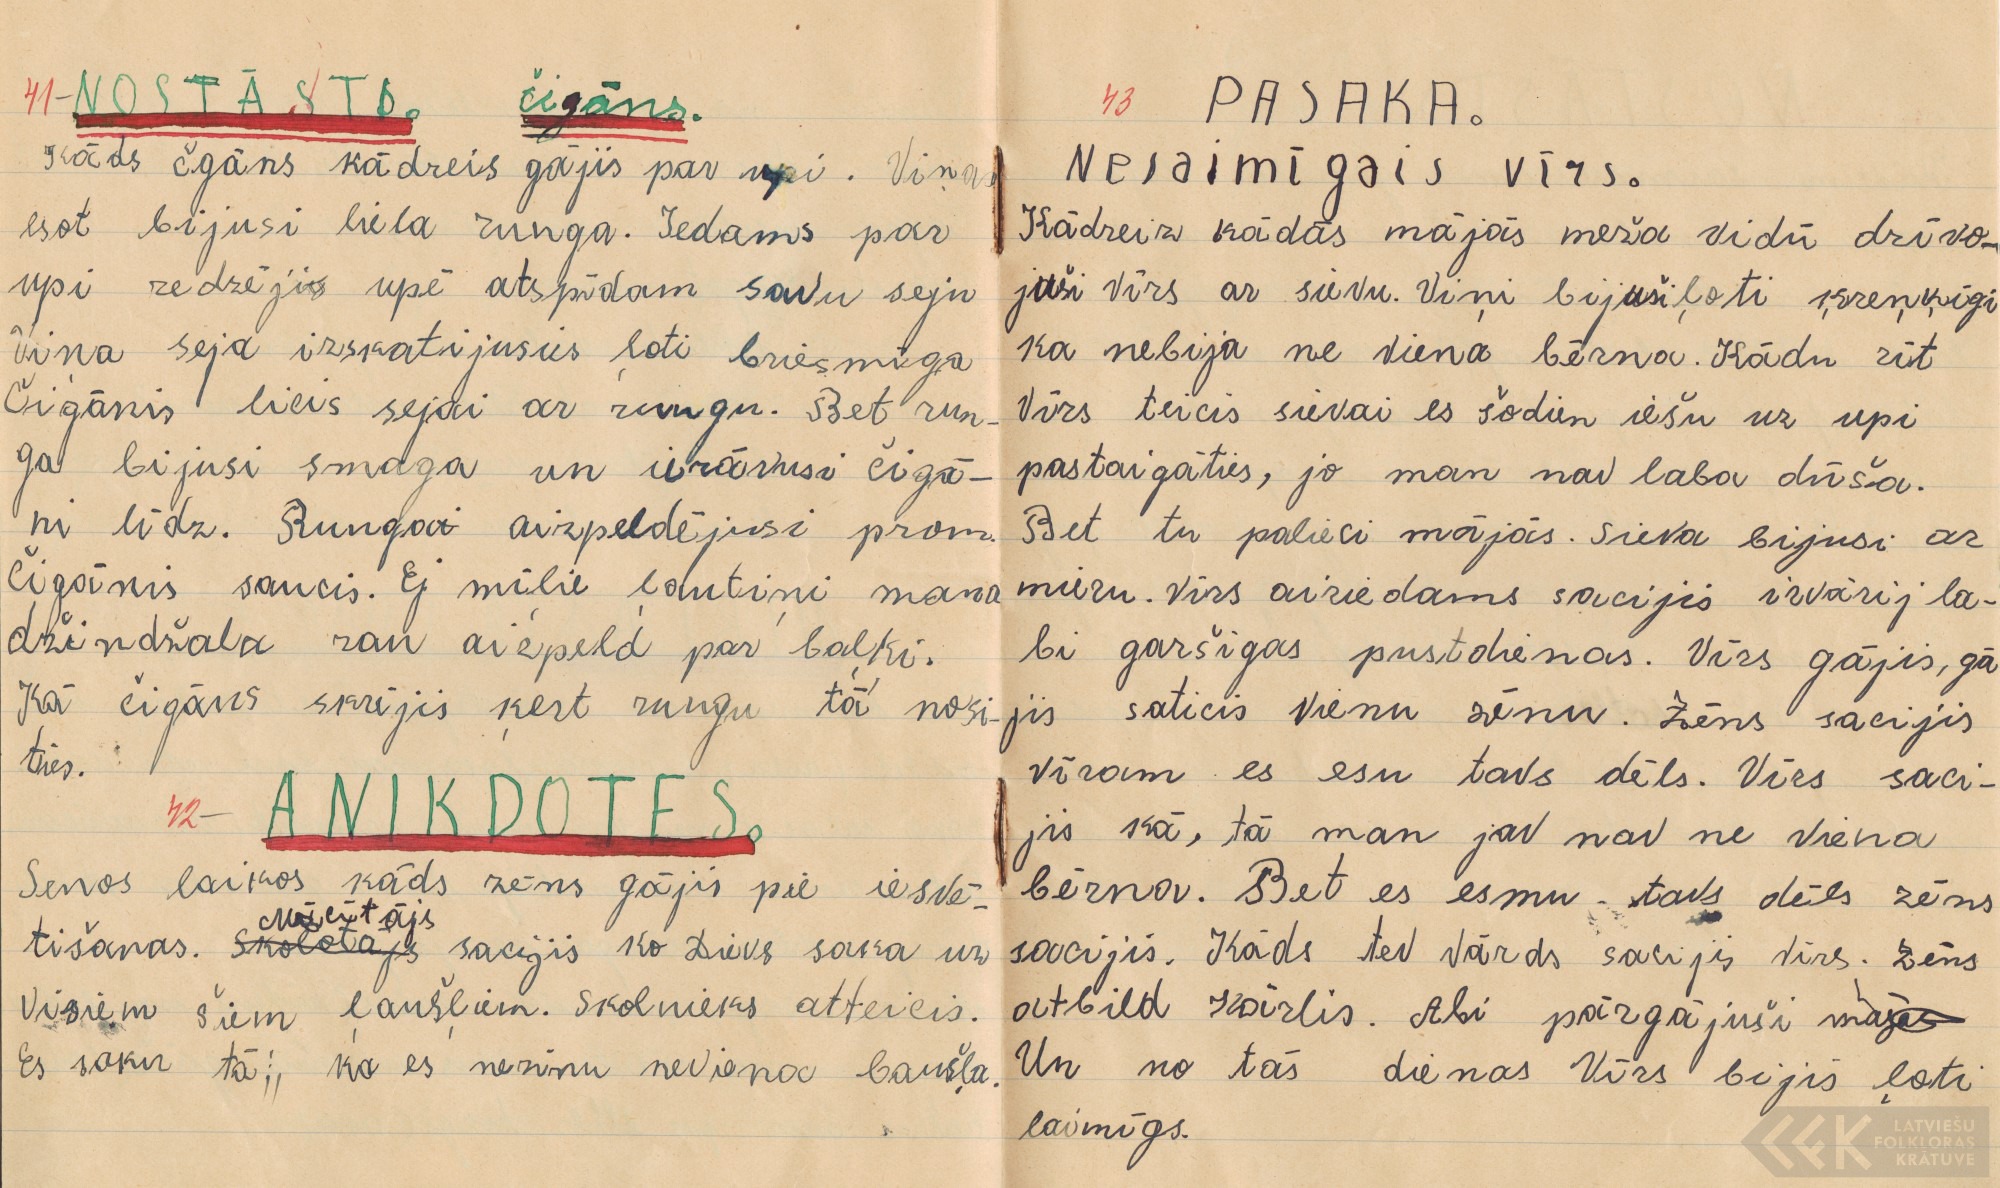 41- NOSTĀSTD. čigāns.
Kāds čgāns kādreis gājis par upi. Viņas
esot bijusi liela runga. Iedams par
upi redzējis upē atspīdam savu seju
Viņa seja izskatijusies ļoti briesmīga
Čigānis licis sejai ar rungu. Bet run-
ga bijusi smaga un ierāvusi čigā-
ni līdz. Rungai aizpeldējusi prom.
Čigānis saucis. Ej mīlie ļautiņi mana
džindžala rau aizpeld par baļķi.
Kā čigāns skrējis ķert rungu tā nosi-
ties.
42- ANIKDOTES.
Senos laikos kāds zēns gājis pie iesvē-
Mācītājs
tišanas. Skolotājs sacijis ko Dievs saka uz
visiem šiem ļaušļiem. Skolnieks atteicis.
Es saku tā:,, ka es nezinu neviena baušļa.
43 PASAKA.
Nesaimīgais vīrs.
Kādreiz kādās mājās meža vidū dzīvo-
juši vīrs ar sievu. Viņi bijuši ļoti ķreņķīgi
ka nebija ne viena bērna. Kādu rīt
Vīrs teicis sievai es šodien iešu uz upi
pastaigāties, jo man nav laba dūša.
Bet tu palieci mājās. Sieva bijusi ar
mieru. Vīrs aiziedams sacijis izvārij la-
bi garšigas pustdienas. Vīrs gājis, gā
jis saticis vienu zēnu. Zēns sacijis
vīram es esu tavs dēls. Vīrs saci-
jis kā, tā man jav nav ne viena
bērna. Bet es esmu tavs dēls zēns
sacijis. Kāds tev vārds sacijis vīrs. Zēns
atbild Kārlis. Abi pārgājuši mājās
Un no tās dienas Vīrs bijis ļoti
laimīgs.
LATVIEŠU
FOLKLORAS
KRĀTUVE